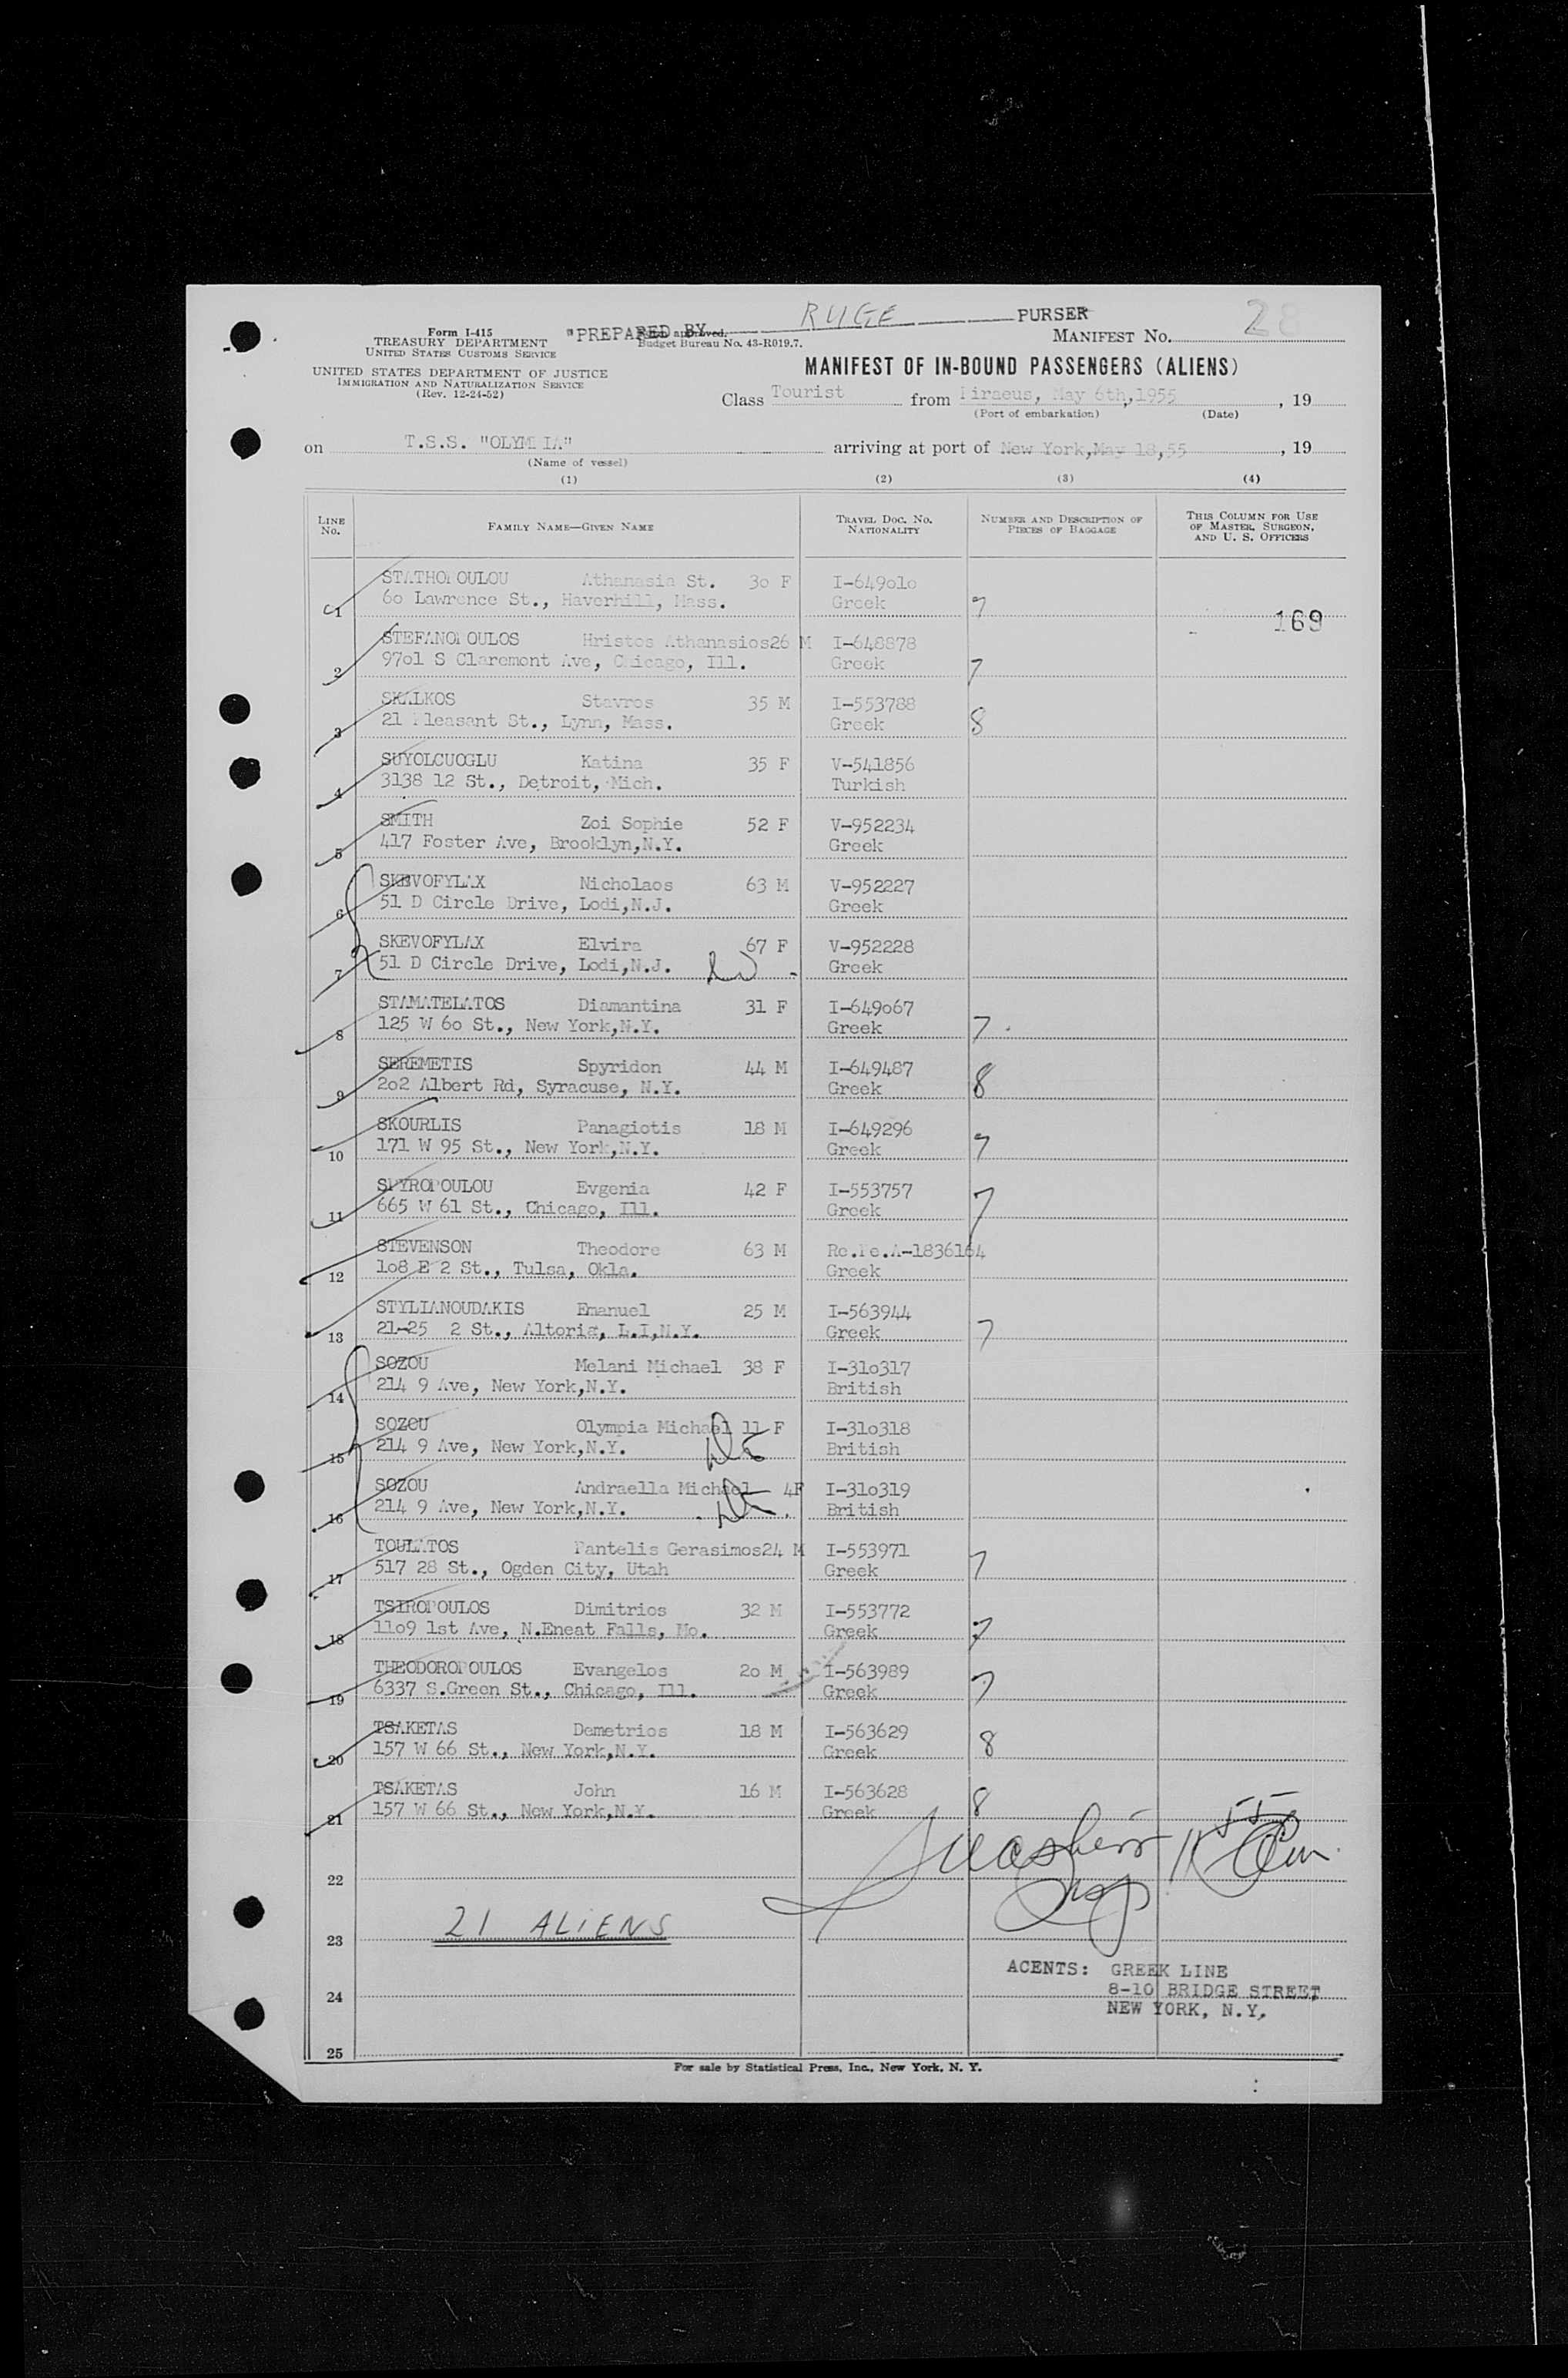 RUGE PURSER
"PREPARED BY
Form I-415
TREASURY DEPARTMENT
UNITED STATES CUSTOMS SERVICE
UNITED STATES DEPARTMENT OF JUSTICE
IMMIGRATION AND NATURALIZATION SERVICE
(Rev. 12-24-52)
Form approved.
Budget Bureau No. 43-R019.7.
MANIFEST No. 28
MANIFEST OF IN-BOUND PASSENGERS (ALIENS)
Class Tourist from Piraeus, May 6th,1955, 19
(Port of embarkation) (Date)
on T.S.S. "OLYMPIA" arriving at port of New York,May 18,55, 19
(Name of vessel)
(1) (2) (3) (4)
LINE NO. FAMILY NAME—GIVEN NAME TRAVEL DOC. NO. NATIONALITY NUMBER AND DESCRIPTION OF PIECES OF BAGGAGE THIS COLUMN FOR USE OF MASTER, SURGEON, AND U. S. OFFICERS
1 STATHOPOULOU Athanasia St. 30 F I-649010
60 Lawrence St., Haverhill, Mass. Greek 7
169
2 STEFANOPOULOS Hristos Athanasios26 M I-648878
9701 S Claremont Ave, Chicago, Ill. Greek 7
3 SKALKOS Stavros 35 M I-553788
21 Pleasant St., Lynn, Mass. Greek 8
4 SUYOLCUOGLU Katina 35 F V-541856
3138 12 St., Detroit, Mich. Turkish
5 SMITH Zoi Sophie 52 F V-952234
417 Foster Ave, Brooklyn,N.Y. Greek
6 SKEVOFYLAX Nicholaos 63 M V-952227
51 D Circle Drive, Lodi,N.J. Greek
7 SKEVOFYLAX Elvira 67 F V-952228
51 D Circle Drive, Lodi,N.J. Greek
8 STAMATELATOS Diamantina 31 F I-649067
125 W 60 St., New York,N.Y. Greek 7
9 SEREMETIS Spyridon 44 M I-649487
202 Albert Rd, Syracuse, N.Y. Greek 8
10 SKOURLIS Panagiotis 18 M I-649296
171 W 95 St., New York,N.Y. Greek 7
11 SPYROPOULOU Evgenia 42 F I-553757
665 W 61 St., Chicago, Ill. Greek 7
12 STEVENSON Theodore 63 M Re.Pe.A-1836164
108 E 2 St., Tulsa, Okla. Greek
13 STYLIANOUDAKIS Emanuel 25 M I-563944
21-25 2 St., Altoria, L.I,N.Y. Greek 7
14 SOZOU Melani Michael 38 F I-310317
214 9 Ave, New York,N.Y. British
15 SOZOU Olympia Michael 11 F I-310318
214 9 Ave, New York,N.Y. British
16 SOZOU Andraella Michael 4F I-310319
214 9 Ave, New York,N.Y. British
17 TOULATOS Pantelis Gerasimos24 M I-553971
517 28 St., Ogden City, Utah Greek 7
18 TSIROPOULOS Dimitrios 32 M I-553772
1109 1st Ave, N.Eneat Falls, Mo. Greek 7
19 THEODOROPOULOS Evangelos 20 M I-563989
6337 S.Green St., Chicago, Ill. Greek 7
20 TSAKETAS Demetrios 18 M I-563629
157 W 66 St., New York,N.Y. Greek 8
21 TSAKETAS John 16 M I-563628
157 W 66 St., New York,N.Y. Greek 8
55
22
23 21 ALIENS
24
25
ACENTS: GREEK LINE
8-10 BRIDGE STREET
NEW YORK, N.Y.
For sale by Statistical Press, Inc., New York, N. Y.